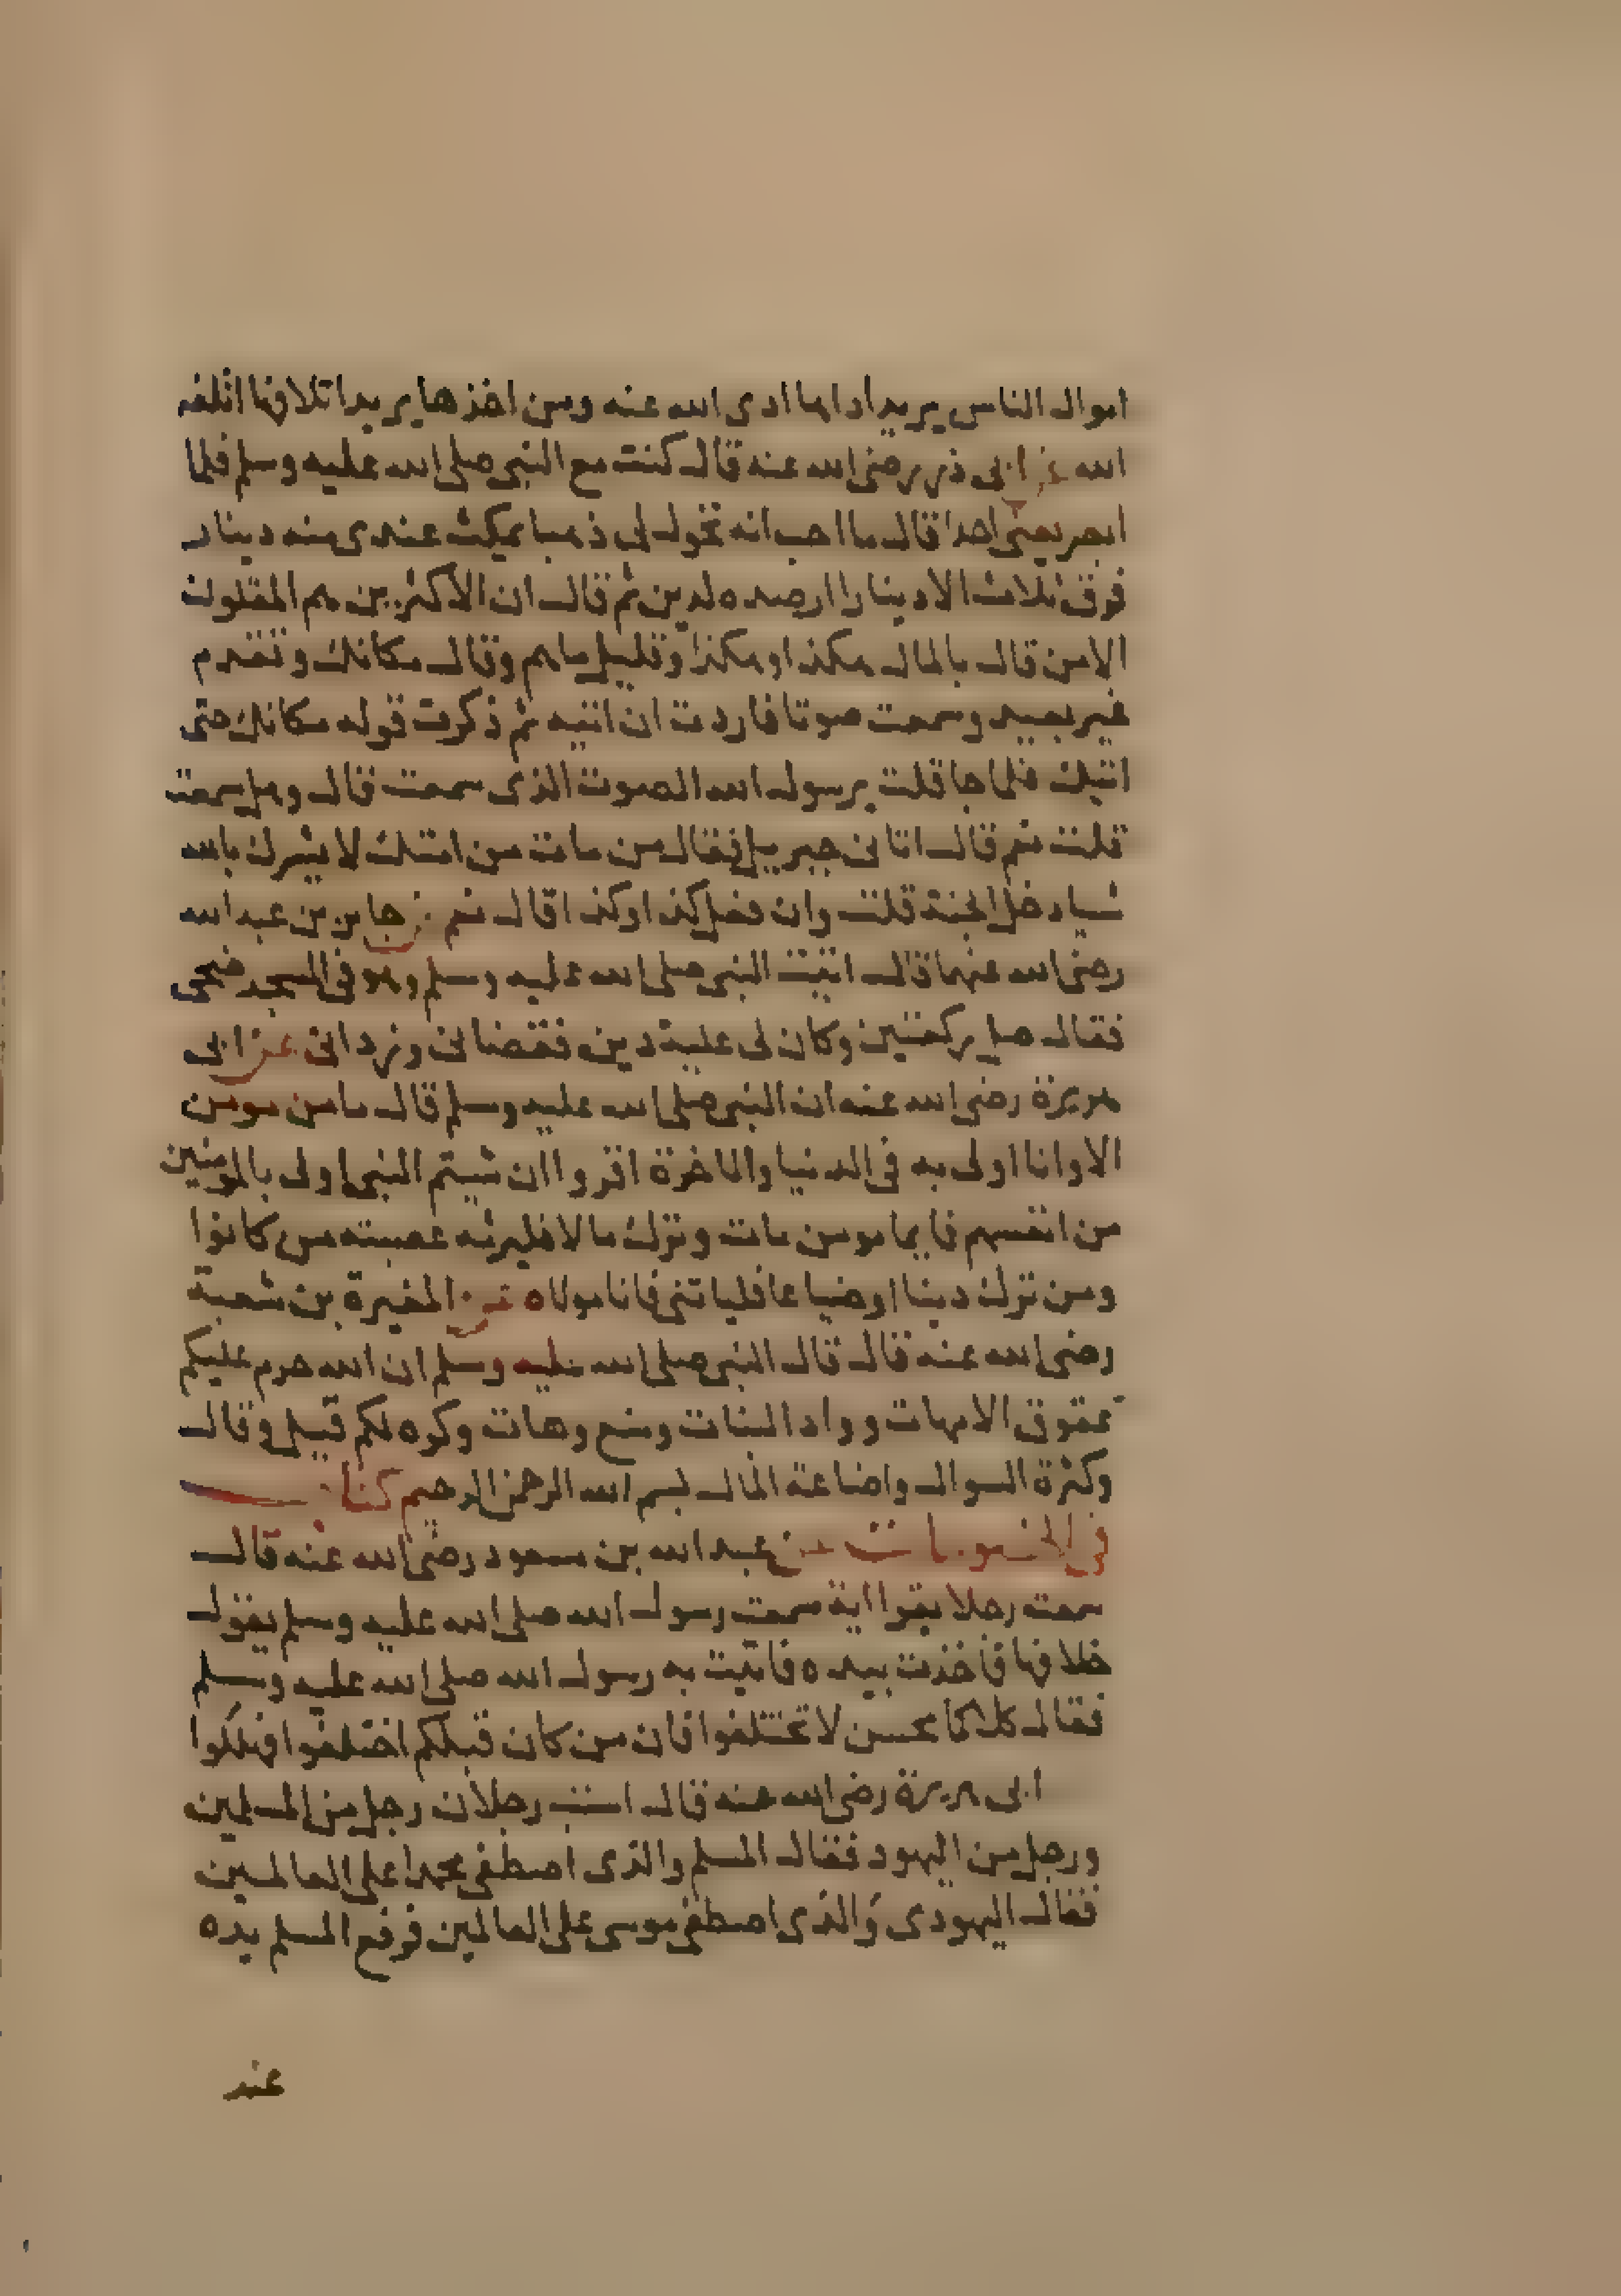 اموال الناس يريد اداها ادى الله عنه ومن اخذها يريد اتلافها اتلفه
الله عن ابى ذر رضى الله عنه قال كنت مع النبى صلى الله عليه وسلم فلما
ابصر يعنى احدا قال ما احب انه تحول لى ذهبا يمكث عندى منه دينار
فوق ثلاث الا دينارا ارصده لدين ثم قال ان الاكثرين هم المقلون
الا من قال بالمال هكذا وهكذا وقليل ماهم وقال مكانك وتقدم
غير بعيد وسمعت صوتا فاردت ان اتيه ثم ذكرت قوله مكانك حتى
اتيك فلما جا قلت يرسول الله الصوت الذى سمعت قال وهل سمعت
قلت نعم قال اتانى جبريل فقال من مات من امتك لا يشرك بالله
شيا دخل الجنة قلت وان فعل كذا وكذا قال نعم عن جابر بن عبد الله
رضى الله عنهما قال اتيت النبى صلى الله عليه وسلم وهو فى المسجد ضحى
فقال صل ركعتين وكان لى عليه دين فقضانى وزادنى عن ابى
هريرة رضى الله عنه ان النبى صلى الله عليه وسلم قال ما من مومن
الا وانا اولى به فى الدنيا والاخرة اقروا ان شيتم النبى اولى بالمومنين
من انفسهم فايما مومن مات وترك مالا فليرثه عصبته من كانوا
ومن ترك دينا او ضياعا فلياتنى فانا مولاه عن المغيرة بن شعبة
رضى الله عنه قال قال النبى صلى الله عليه وسلم ان الله حرم عليكم
عقوق الامهات وواد البنات ومنع وهات وكره لكم قيل وقال
وكثرة السوال واضاعة المال بسم الله الرحمن الرحيم كتاب
فى الخصومات عن عبد الله بن مسعود رضى الله عنه قال
سمعت رجلا يقرا اية سمعت رسول الله صلى الله عليه وسلم يقول
خلافها فاخذت بيده فاتيت به رسول الله صلى الله عليه وسلم
فقال كلاكما محسن لا تختلفوا فان من كان قبلكم اختلفوا فهلكوا
ابى هريرة رضى الله عنه قال استب رجلان رجل من المسلمين
ورجل من اليهود فقال المسلم والذى اصطفى محمدا على العالمين
فقال اليهودى والذى اصطفى موسى على العالمين فرفع المسلم يده
عند